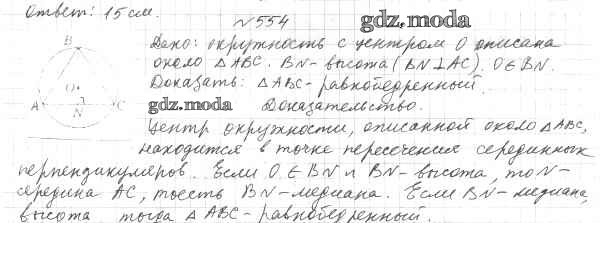 Ответ: 15 см.
№ 554 gdz.moda
B Дано: окружность с центром O описана
около △ABC. BN - высота (BN⊥AC), O∈BN.
O Доказать: △ABC - равнобедренный.
A N C gdz.moda Доказательство.
Центр окружности, описанной около △ABC,
находится в точке пересечения серединных
перпендикуляров. Если O∈BN и BN - высота, то N-
середина AC, тоесть BN - медиана. Если BN - медиана,
высота тогда △ABC - равнобедренный.